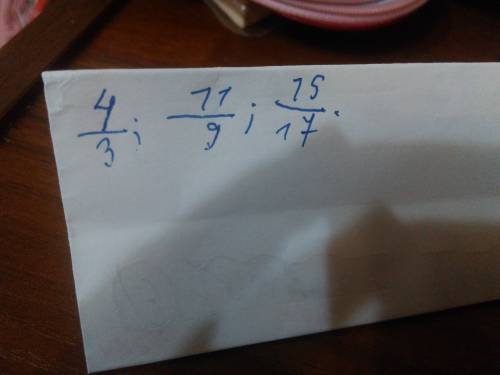 4/3; 11/9; 15/17.